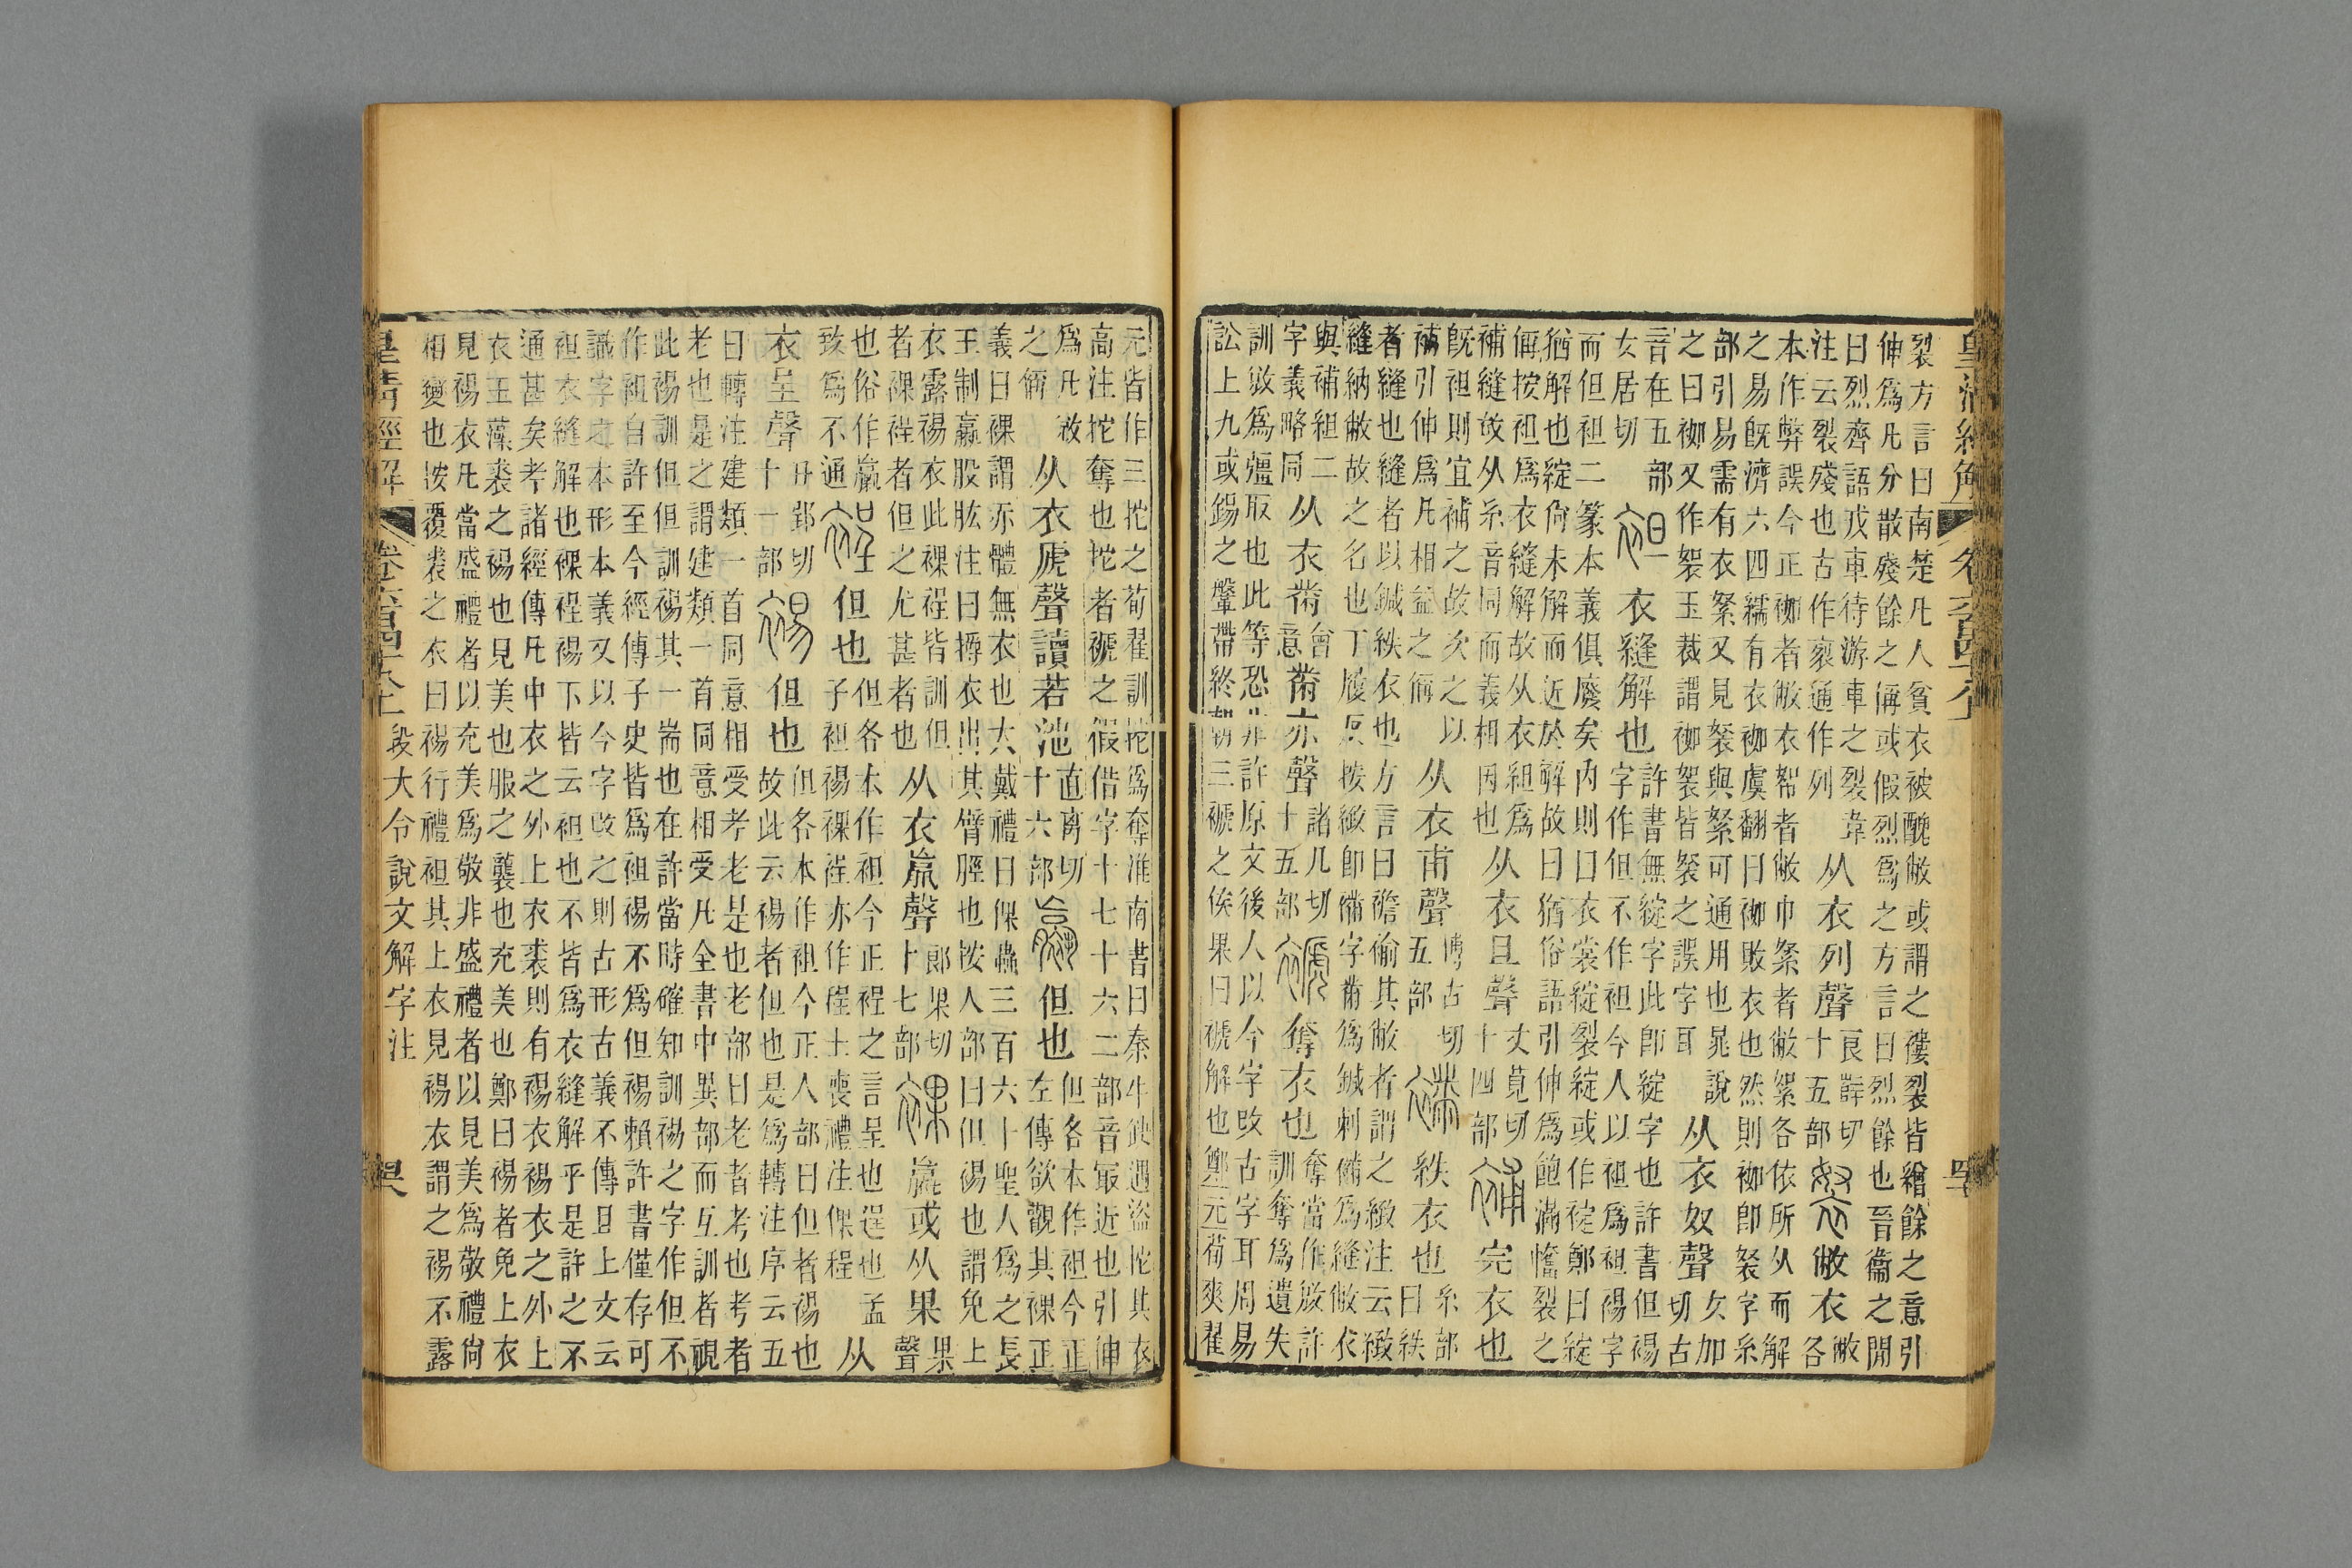 皇清經解 卷六百四十八上
裂方言曰南楚凡人貧衣被醜敝或謂之褸裂皆繒餘之意引
伸爲凡分散殘餘之偁或假烈爲之方言曰烈餘也晉衞之閒
曰烈齊語戎車待游車之裂韋
注云裂殘也古作裂通作列 从衣列聲 良辥切十五部 袽 敝衣 敝各
本作弊誤今正袽者敝衣帤者敝巾絮者敝緜各依所从而解
之易旣濟六四繻有衣袽虞翻曰袽敗衣也然則袽卽袈字糸
部引易需有衣絮又見袈與絮可通用也晁說
之曰袽又作袈玉裁謂袽袈皆袈之誤字耳 从衣奴聲 女加切古
音在五部
女居切 袒 衣縫解也 許書無綻字此卽綻字也許書但裼
字作但不作袒今人以袒爲袒裼字
而但袒二篆本義俱廢矣內則曰衣裳綻裂綻或作䘺鄭曰綻
猶解也綻尙未解而近於解故曰猶俗語引伸爲飽滿㦃裂之
偁按袒爲衣縫解故从衣組爲
補縫故从糸音同而義相因也 从衣旦聲 丈莧切十四部 補 完衣也
旣袒則宜補之故次之以
補引伸爲凡相益之偁 从衣甫聲 博古切五部 襧 紩衣也 糸部曰紩
者縫也縫者以鍼紩衣也方言曰襜褕其敝者謂之緻注云緻
縫納敝故之名也丁履反按緻卽襧字黹爲鍼刺襧爲縫敝衣
與補組二
字義略同 从衣黹 會意 黹亦聲 諸几切十五部 褫 奪衣也 奪當作敚許
訓奪爲遺失
訓敚爲彊取也此等恐非許原文後人以今字改古字耳周易
訟上九或錫之鞶帶終朝三褫之侯果曰褫解也鄭元荀爽翟
元皆作三拕之荀翟訓拕爲奪淮南書曰秦牛缺遇盜拕其衣
高注拕奪也拕者褫之假借字十七十六二部音冣近也引伸
爲凡敚
之偁 从衣虒聲讀若池 直离切十六部 臝 但也 但各本作袒今正
左傳欲觀其裸正
義曰裸謂赤體無衣也大戴禮曰倮蟲三百六十聖人爲之長
王制臝股肱注曰擐衣出其臂脛也按人部曰但裼也謂免上
衣露裼衣此裸裎皆訓但
者裸裎者但之尤甚者也 从衣𣎆聲 郎果切十七部 裸 臝或从果 果聲
也俗作臝
致爲不通 裎 但也 但各本作袒今正裎之言呈也逞也孟
子袒裼裸裎亦作程士喪禮注倮程 从
衣呈聲 丑郢切十一部 裼 但也 但各本作袒今正人部曰但者裼也
故此云裼者但也是爲轉注序云五
曰轉注建類一首同意相受考老是也老部曰老者考也考者
老也是之謂建類一首同意相受凡全書中異部而互訓者視
此裼訓但但訓裼其一耑也在許當時確知訓裼之字作但不
作袒自許至今經傳子史皆爲袒裼不爲但裼賴許書僅存可
識字之本形本義又以今字改之則古形古義不傳且上文云
袒衣縫解也裸裎裼下皆云袒也不皆爲衣縫解乎是許之不
通甚矣考諸經傳凡中衣之外上衣裘則有裼衣裼衣之外上
衣玉藻裘之裼也見美也服之襲也充美也鄭曰裼者免上衣
見裼衣凡當盛禮者以充美爲敬非盛禮者以見美爲敬禮尙
相變也按覆裘之衣曰裼行禮袒其上衣見裼衣謂之裼不露
皇清經解 卷六百四十八上 段大令說文解字注